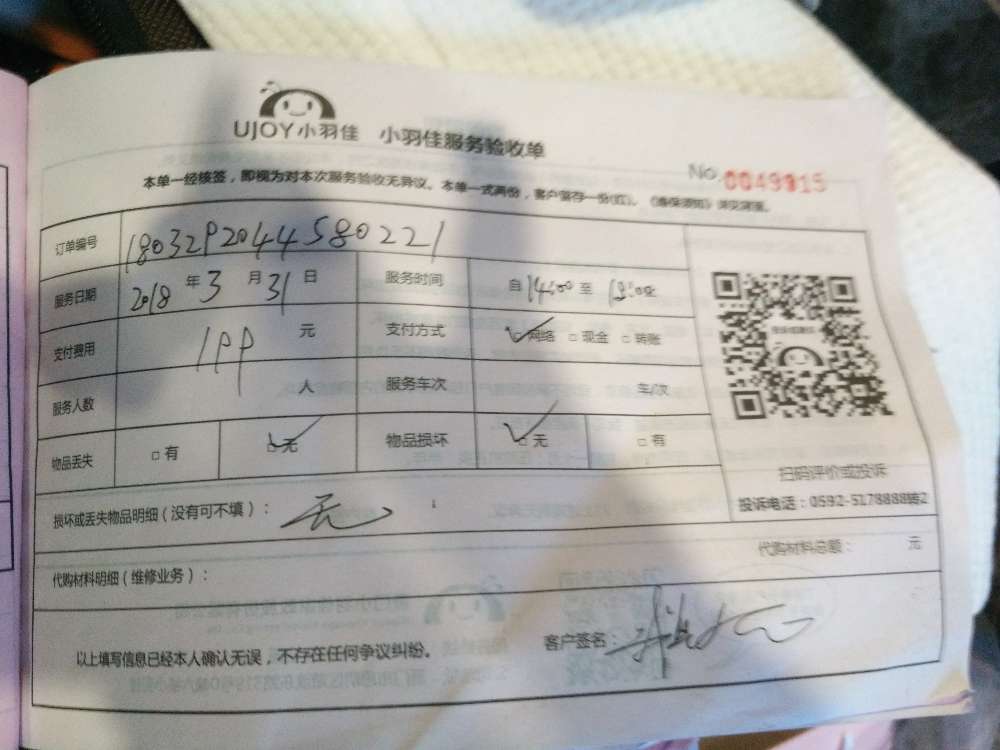 UJOY小羽佳 小羽佳服务验收单
No. 0049915
本单一经核签，即视为对本次服务验收无异议。本单一式两份，客户留存一份(红)。《维保须知》详见背面。
订单编号 180329204458 0221
服务日期 2018 年 3 月 31 日 服务时间 自 14:00 至
支付费用 199 元 支付方式 ☑网络 □现金 □转账
服务人数 人 服务车次 车/次
物品丢失 □有 ☑无 物品损坏 ☑无 □有
扫码评价或投诉
投诉电话：0592-5178888转2
损坏或丢失物品明细（没有可不填）： 无
代购材料总额： 元
代购材料明细（维修业务）：
以上填写信息已经本人确认无误，不存在任何争议纠纷。
客户签名：